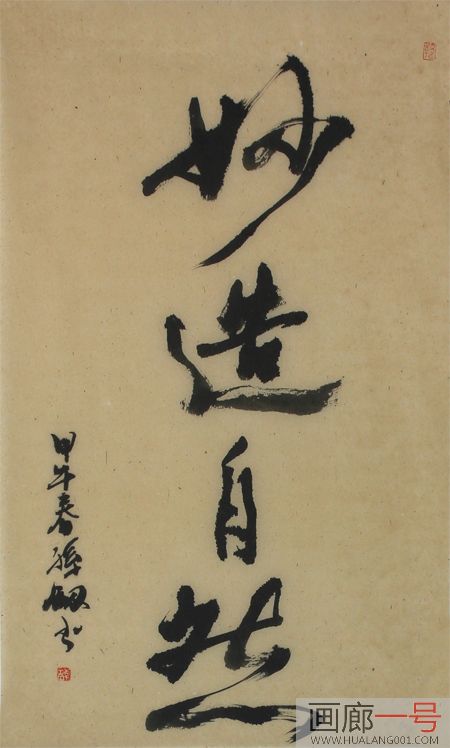 妙造自然
甲午春孫书
画廊一号
WWW.HUALANG001.COM